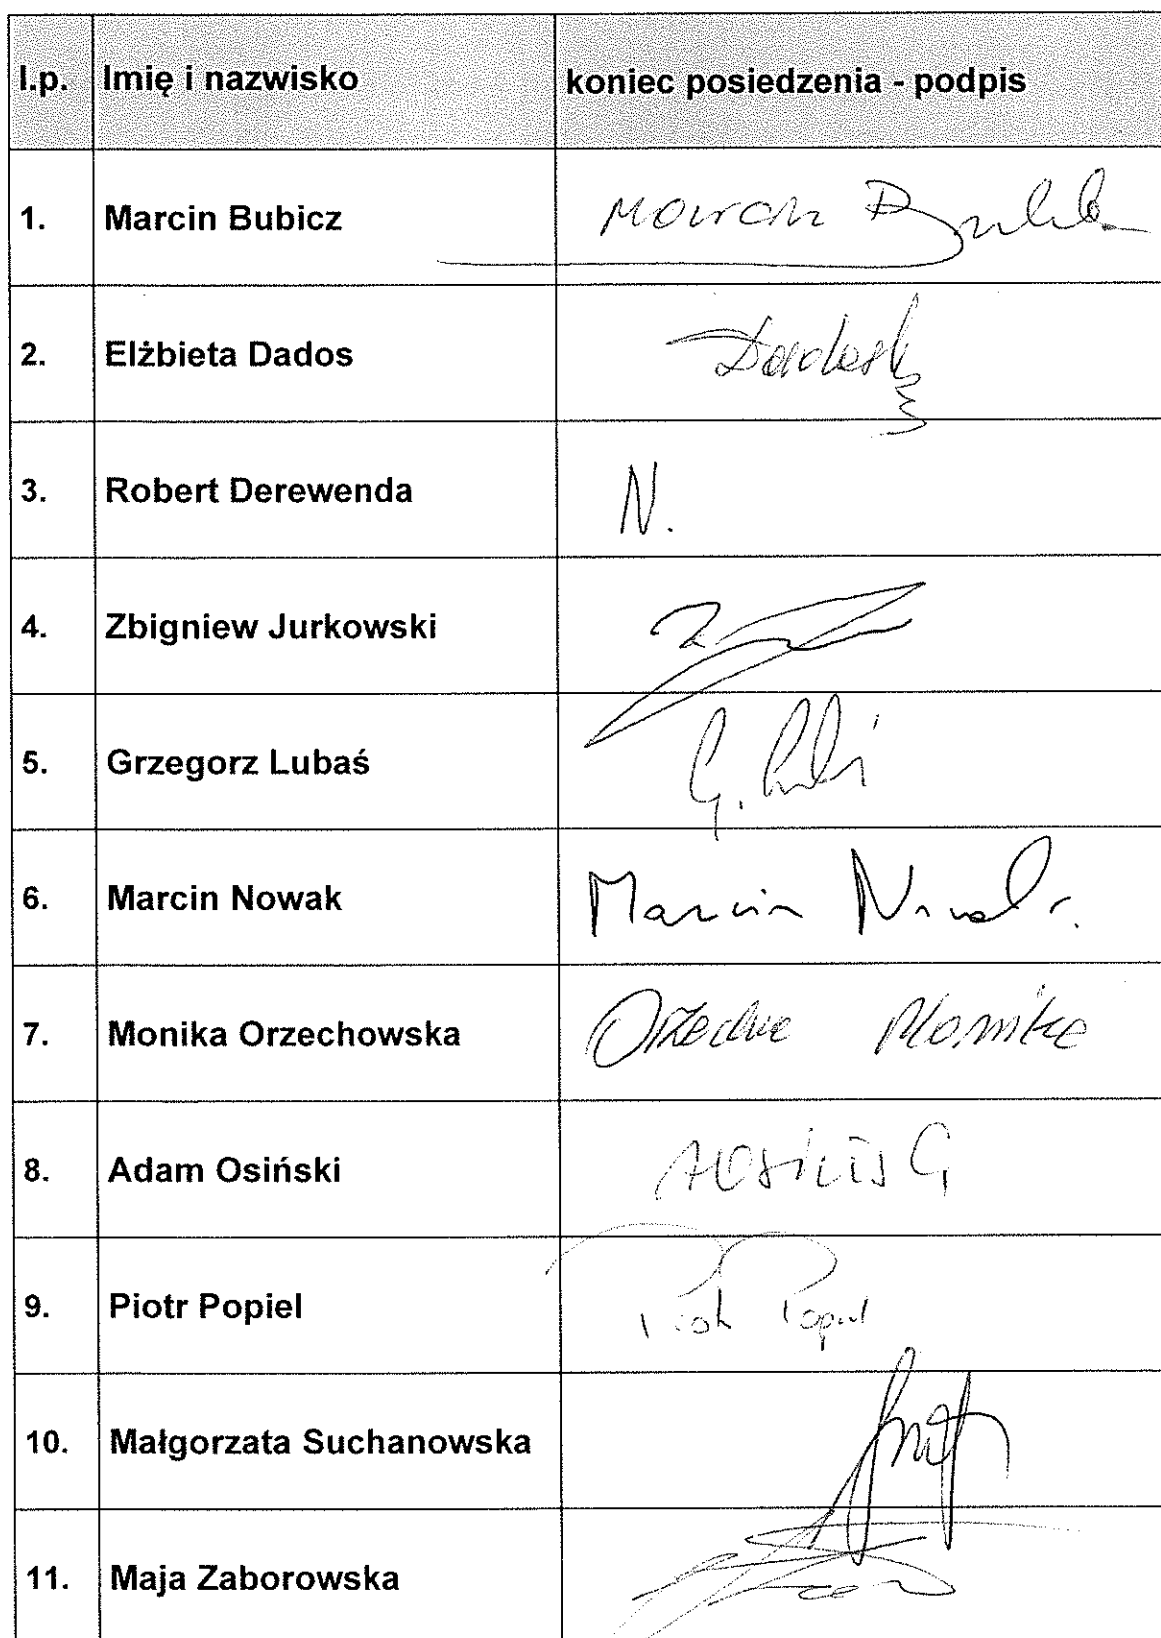 l.p. Imię i nazwisko koniec posiedzenia - podpis
1. Marcin Bubicz Marcin
2. Elżbieta Dados Dados
3. Robert Derewenda N.
4. Zbigniew Jurkowski
5. Grzegorz Lubaś G.
6. Marcin Nowak Marcin Nowak
7. Monika Orzechowska Monika
8. Adam Osiński
9. Piotr Popiel Piotr Popiel
10. Małgorzata Suchanowska
11. Maja Zaborowska